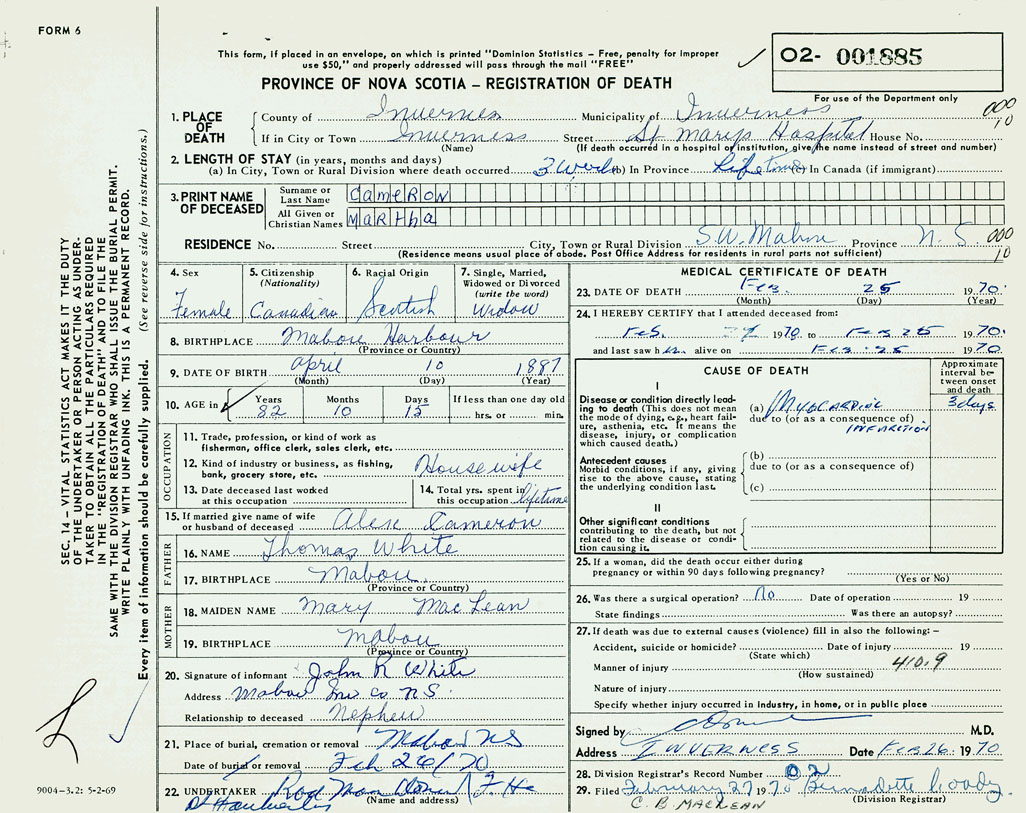 FORM 6
This form, if placed in an envelope, on which is printed "Dominion Statistics – Free, penalty for improper
use $50," and properly addressed will pass through the mail "FREE"
O2- 001885
PROVINCE OF NOVA SCOTIA – REGISTRATION OF DEATH
For use of the Department only
1. PLACE OF DEATH
County of Inverness Municipality of Inverness 000
If in City or Town Inverness Street St Marys Hospital House No. 10
(Name) (If death occurred in a hospital or institution, give the name instead of street and number)
2. LENGTH OF STAY (in years, months and days)
(a) In City, Town or Rural Division where death occurred 3 (b) In Province Life time (c) In Canada (if immigrant)
3. PRINT NAME OF DECEASED
Surname or Last Name CAMERON
All Given or Christian Names MARTHA
RESIDENCE No. Street City, Town or Rural Division S.W. Mabou Province N.S 000
(Residence means usual place of abode. Post Office Address for residents in rural parts not sufficient) 10
4. Sex Female
5. Citizenship (Nationality) Canadian
6. Racial Origin Scottish
7. Single, Married, Widowed or Divorced (write the word) Widow
8. BIRTHPLACE Mabou Harbour
(Province or Country)
9. DATE OF BIRTH April 10 1887
(Month) (Day) (Year)
10. AGE in Years 82 Months 10 Days 15 If less than one day old
hrs. or min.
OCCUPATION
11. Trade, profession, or kind of work as
fisherman, office clerk, sales clerk, etc.
12. Kind of industry or business, as fishing,
bank, grocery store, etc. Housewife
13. Date deceased last worked
at this occupation
14. Total yrs. spent in
this occupation lifetime
15. If married give name of wife
or husband of deceased Alex Cameron
FATHER
16. NAME Thomas White
17. BIRTHPLACE Mabou
(Province or Country)
MOTHER
18. MAIDEN NAME Mary MacLean
19. BIRTHPLACE Mabou
(Province or Country)
20. Signature of informant John R White
Address Mabou Inv Co NS
Relationship to deceased Nephew
21. Place of burial, cremation or removal Mabou NS
Date of burial or removal Feb 26/70
22. UNDERTAKER Rod
(Name and address)
MEDICAL CERTIFICATE OF DEATH
23. DATE OF DEATH Feb. 25 1970.
(Month) (Day) (Year)
24. I HEREBY CERTIFY that I attended deceased from:
Feb. 1970 to Feb 25 1970.
and last saw her alive on Feb 25 1970
CAUSE OF DEATH
Approximate
interval be-
tween onset
and death
I
Disease or condition directly lead-
ing to death (This does not mean
the mode of dying, e.g., heart fail-
ure, asthenia, etc. It means the
disease, injury, or complication
which caused death.)
(a) Myocardial 3 days
due to (or as a consequence of)
INFARCTION
Antecedent causes
Morbid conditions, if any, giving
rise to the above cause, stating
the underlying condition last.
(b)
due to (or as a consequence of)
(c)
II
Other significant conditions
contributing to the death, but not
related to the disease or condi-
tion causing it.
25. If a woman, did the death occur either during
pregnancy or within 90 days following pregnancy?
(Yes or No)
26. Was there a surgical operation? No Date of operation 19
State findings Was there an autopsy?
27. If death was due to external causes (violence) fill in also the following: –
Accident, suicide or homicide? Date of injury 19
(State which)
Manner of injury 410.9
(How sustained)
Nature of injury
Specify whether injury occurred in Industry, in home, or in public place
Signed by M.D.
Address INVERNESS Date Feb 26 1970
28. Division Registrar's Record Number 02
29. Filed February 27 1970 Bernadette
C. B. MACLEAN (Division Registrar)
SEC. 14 – VITAL STATISTICS ACT MAKES IT THE DUTY
OF THE UNDERTAKER OR PERSON ACTING AS UNDER-
TAKER TO OBTAIN ALL THE PARTICULARS REQUIRED
IN THE "REGISTRATION OF DEATH" AND TO FILE THE
SAME WITH THE DIVISION REGISTRAR WHO SHALL ISSUE THE BURIAL PERMIT.
WRITE PLAINLY WITH UNFADING INK. THIS IS A PERMANENT RECORD.
Every item of information should be carefully supplied. (See reverse side for instructions.)
9004–3.2: 5-2-69